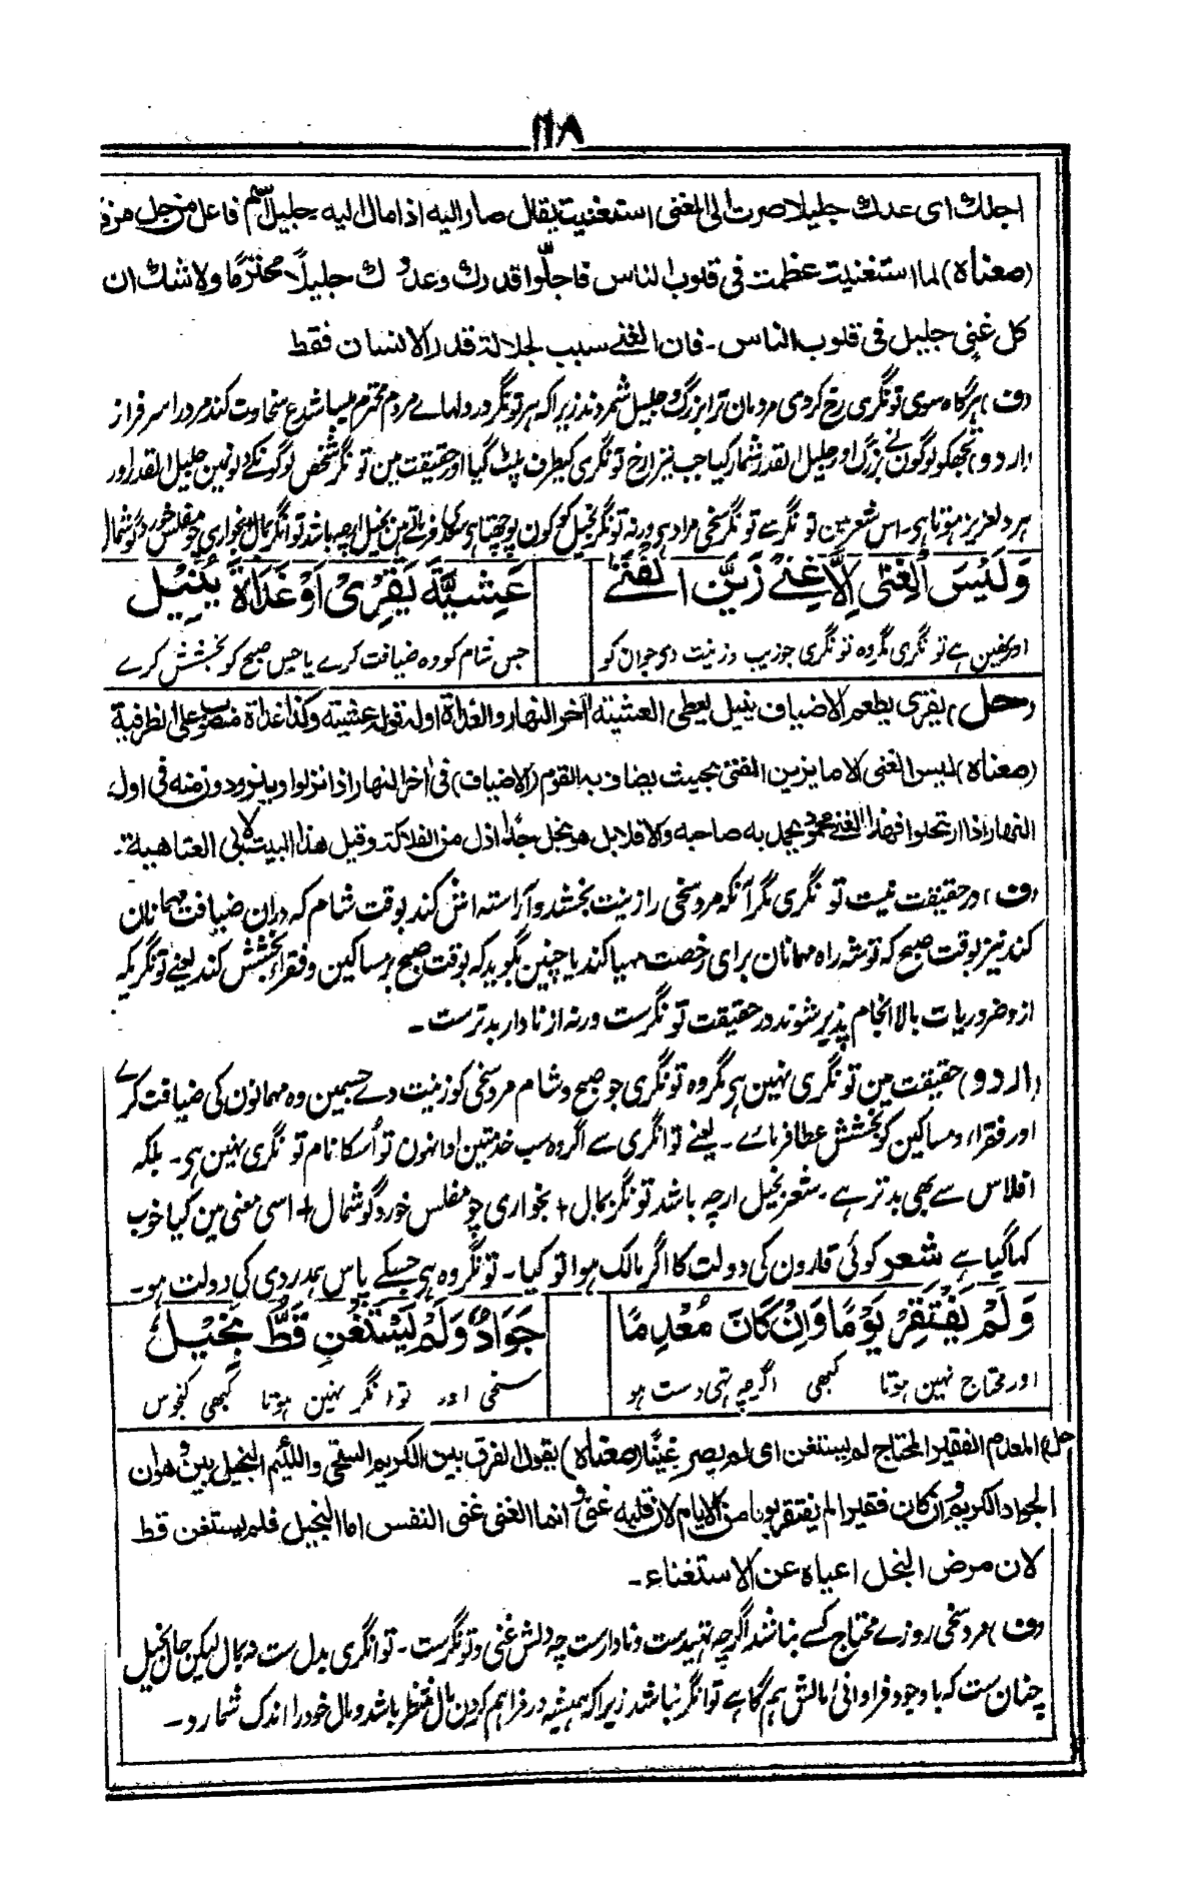 ١١٨
اجلك اى عدك جليلا صرت الى الغنى استغنيت يقال صار اليه اذا مال اليه جليل اسم فاعل من جل من
(معناه) لما استغنيت عظمت فى قلوب الناس فاجلوا قدرك وعدوك جليلًا محترمًا ولا شك ان
كل غنى جليل فى قلوب الناس ـ فان الغنے سبب لجلالة قدر الانسان فقط
(ف) ہرگاہ سوی تونگری رخ کردی مردمان ترا بزرگ و جلیل شمردند زیرا کہ ہر تونگر در دلہاے مردم محترم میباشد ع سخاوت کند مرد را سرفراز
(اردو) تجھکو لوگون نے بزرگ اور جلیل القدر شمار کیا جب تیرا رخ تونگری کیطرف پلٹ گیا اور حقیقت مین تونگر شخص لوگونکے دلونمین جلیل القدر اور
ہر دلعزیز ہوتا ہی۔ اس شعر مین تونگر سے تونگر سخی مراد ہی ورنہ تونگر بخیل کو کون پوچھتا ہی سعدی فرماتے ہین بخیل ارچہ باشد تونگر بمال بخواری چو مفلس خورد گوشمال
وَلَيْسَ الْغِنٰى اِلَّا غِنًے زَيَّنَ الْفَتٰے عَشِيَّةَ يَقْرِىْ اَوْ غَدَاةَ يُنِيْلُ
اور نہین ہے تونگری مگر وہ تونگری جو زیب و زینت دی جوان کو جس شام کو وہ ضیافت کرے یا جس صبح کو بخشش کرے
(حل) يقرى يطعم الاضياف ينيل يعطى العشية آخر النهار والغداة اوله قوله عشية وكذا غداة منصوب على الظرفية
(معناه) ليس الغنى الا ما يزين الفتى بحيث يضاف به القوم (الاضياف) فى اخر النهار اذا نزلوا ويتزودون منه فى اول
النهار اذا ارتحلوا فهذا الغنے محمود يحمد به صاحبه والا فلا بل هو بخل جدًا اذل من الفلاكة وقيل هذا البيت لابى العتاهية ـ
(ف) در حقیقت نیست تونگری مگر آنکہ مرد سخی را زینت بخشد و آراستہ اش کند بوقت شام کہ دران ضیافت مہمانان
کند نیز بوقت صبح کہ توشہ راہ مہمانان برای رخصت مہیا کند یا چنین بگوید کہ بوقت صبح بر مساکین و فقراء بخشش کند یعنے تونگریکہ
ازو ضروریات بالا انجام پذیر شوند در حقیقت تونگرست ورنہ از نادار بدترست ۔
(اردو) حقیقت مین تونگری نہین ہی مگر وہ تونگری جو صبح و شام مرد سخی کو زینت دے جسمین وہ مہمانون کی ضیافت کرے
اور فقراء و مساکین کو بخشش عطا فرمائے ۔ یعنے توانگری سے اگر وہ سب خدمتین ادا نہون تو اُسکا نام تونگری نہین ہی۔ بلکہ
افلاس سے بھی بدتر ہے ۔ شعر بخیل ارچہ باشد تونگر بمال + بخواری چو مفلس خورد گوشمال + اسی معنی مین کیا خوب
کہا گیا ہے شعر کوئی قارون کی دولت کا اگر مالک ہوا تو کیا ۔ تونگر وہ ہی جسکے پاس ہمدردی کی دولت ہو۔
وَلَمْ يَفْتَقِرْ يَوْمًا وَاِنْ كَانَ مُعْدِمًا جَوَادٌ وَلَمْ يَسْتَغْنِ قَطُّ بَخِيْلُ
اور محتاج نہین ہوتا کبھی اگرچہ تہی دست ہو سخی اور توانگر نہین ہوتا کبھی کنجوس
(حل) المعدم الفقير المحتاج لم يستغن اى لم يصر غنيًا (معناه) يقول الفرق بين الكريم السخى واللئيم البخيل بين وهو ان
الجواد الكريم وان كان فقيرا لم يفتقر يوما من الايام لان قلبه غنى وانما الغنى غنى النفس اما البخيل فلم يستغن قط
لان مرض البخل اعياه عن الاستغناء ـ
(ف) مرد سخی روزے محتاج کسے نباشد اگرچہ تہیدست و نادارست چہ دلش غنی و تونگرست ۔ توانگری بدل ست نہ بمال لیکن حال بخیل
چنان ست کہ با وجود فراوانئ مالش ہم گاہے توانگر نباشد زیرا کہ ہمیشہ در فراہم کردن مال منتظر باشد و مال خود را اندک شمارد ۔